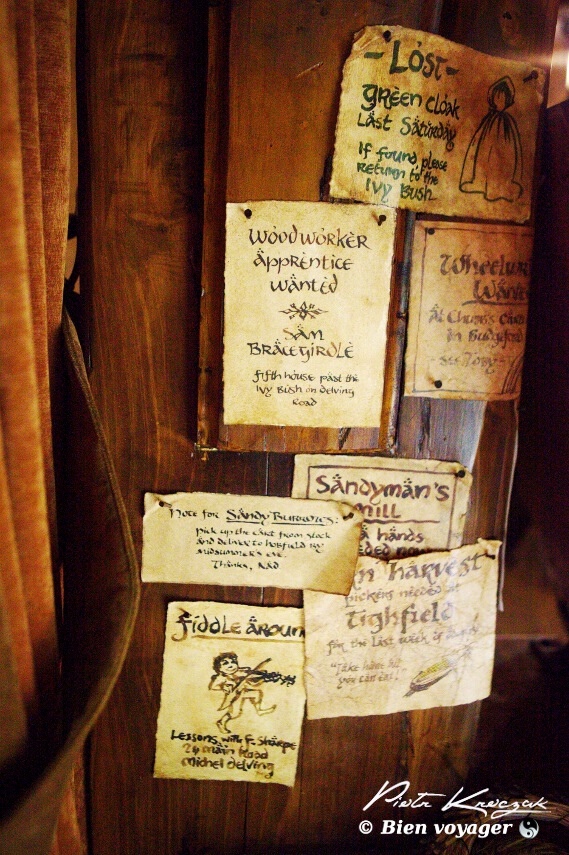 - Lost -
green cloak
Last Saturday
If found please
return to the
Ivy Bush
Woodworker
apprentice
wanted
Sam
Bracegirdle
fifth house past the
Ivy Bush on delving
Road
Wheelwri
Wante
At Chum's
in Budgeford
Sandyman's
mill
hands
eded now
Note for Sandy Burrows:
pick up the cart from stock
and deliver to hobfield by
midsummer's eve.
Thanks, Dad
harvest
pickers needed at
Tighfield
for the last week of
"Take home all
you can eat!"
fiddle aroun
Lessons with F. Sharpe
24 main Road
michel delving
Piotr Krewczak
© Bien voyager